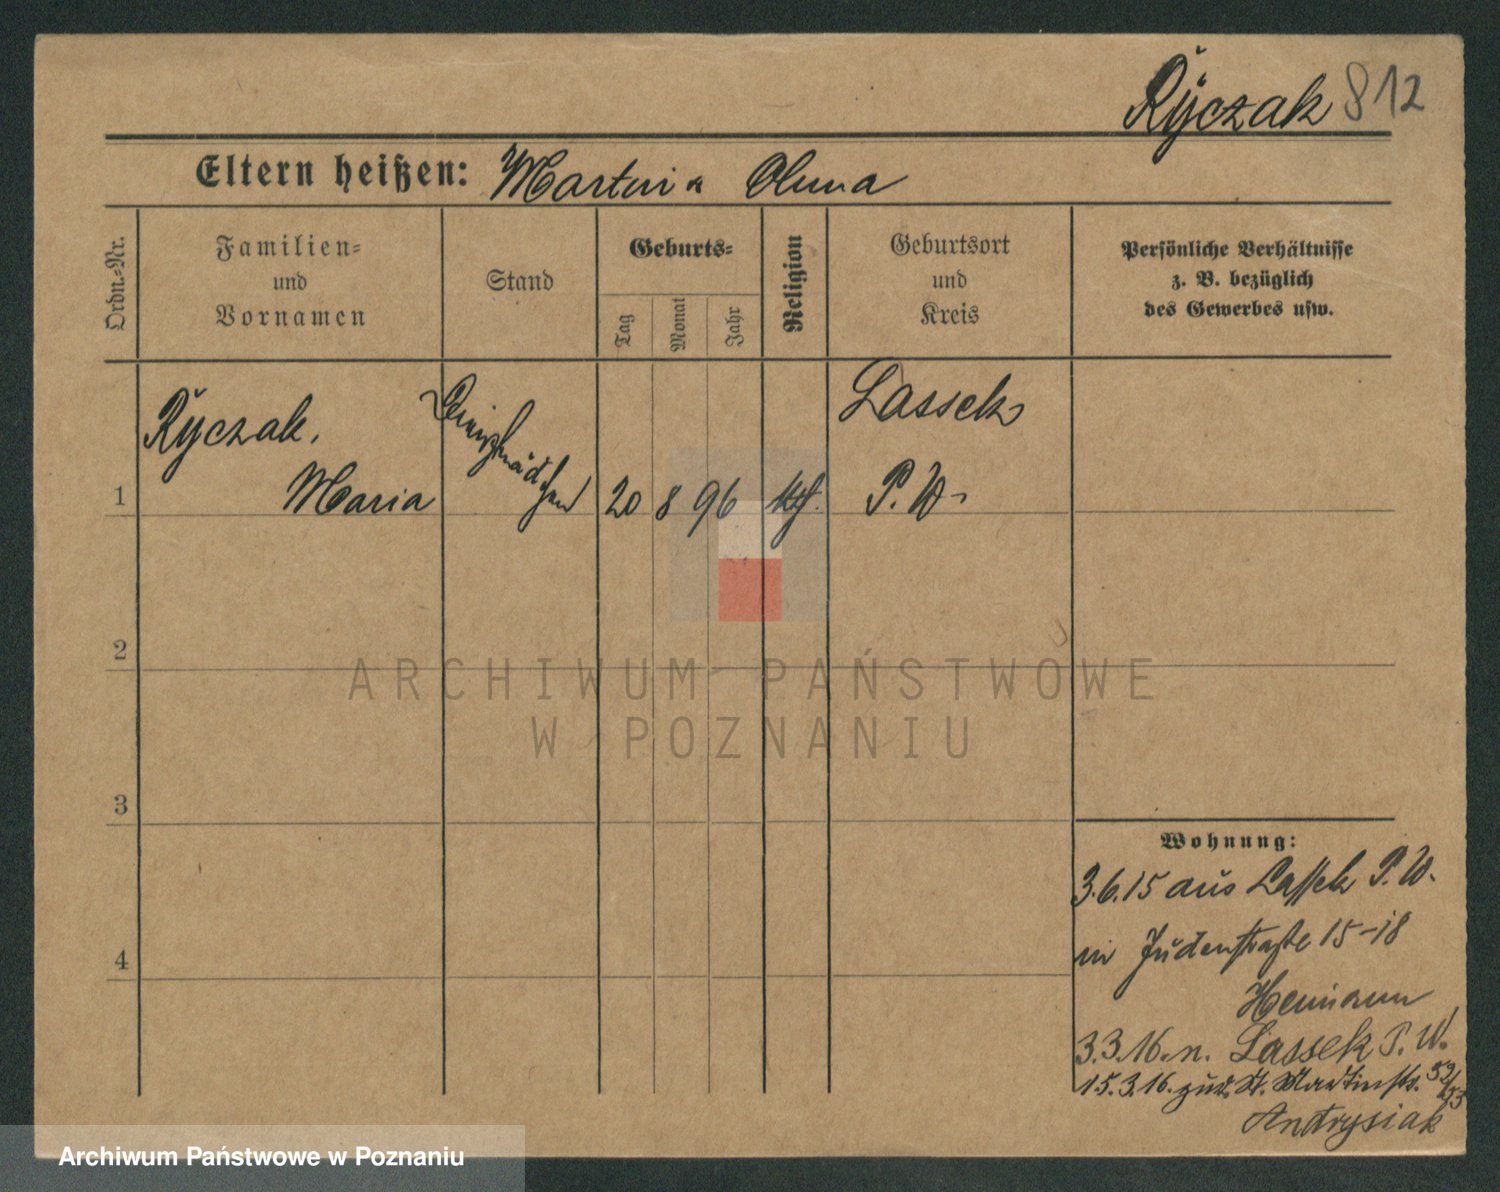 Ryczak 812
Eltern heißen: Martin u
Ordn.-Nr.
Familien-
und
Vornamen
Stand
Geburts-
Tag
Monat
Jahr
Religion
Geburtsort
und
Kreis
Persönliche Verhältnisse
z. B. bezüglich
des Gewerbes usw.
1
Ryczak,
Maria
Dienstmädchen
20 8 96 kth.
Lassek
P. W.
2
3
4
Wohnung:
3.6.15 aus Lassek P. W.
in Judenstraße 15-18
3.3.16. n. Lassek P. W.
15.3.16. zur. St. Martinstr. 52/53
Andrysiak
ARCHIWUM PAŃSTWOWE
W POZNANIU
Archiwum Państwowe w Poznaniu